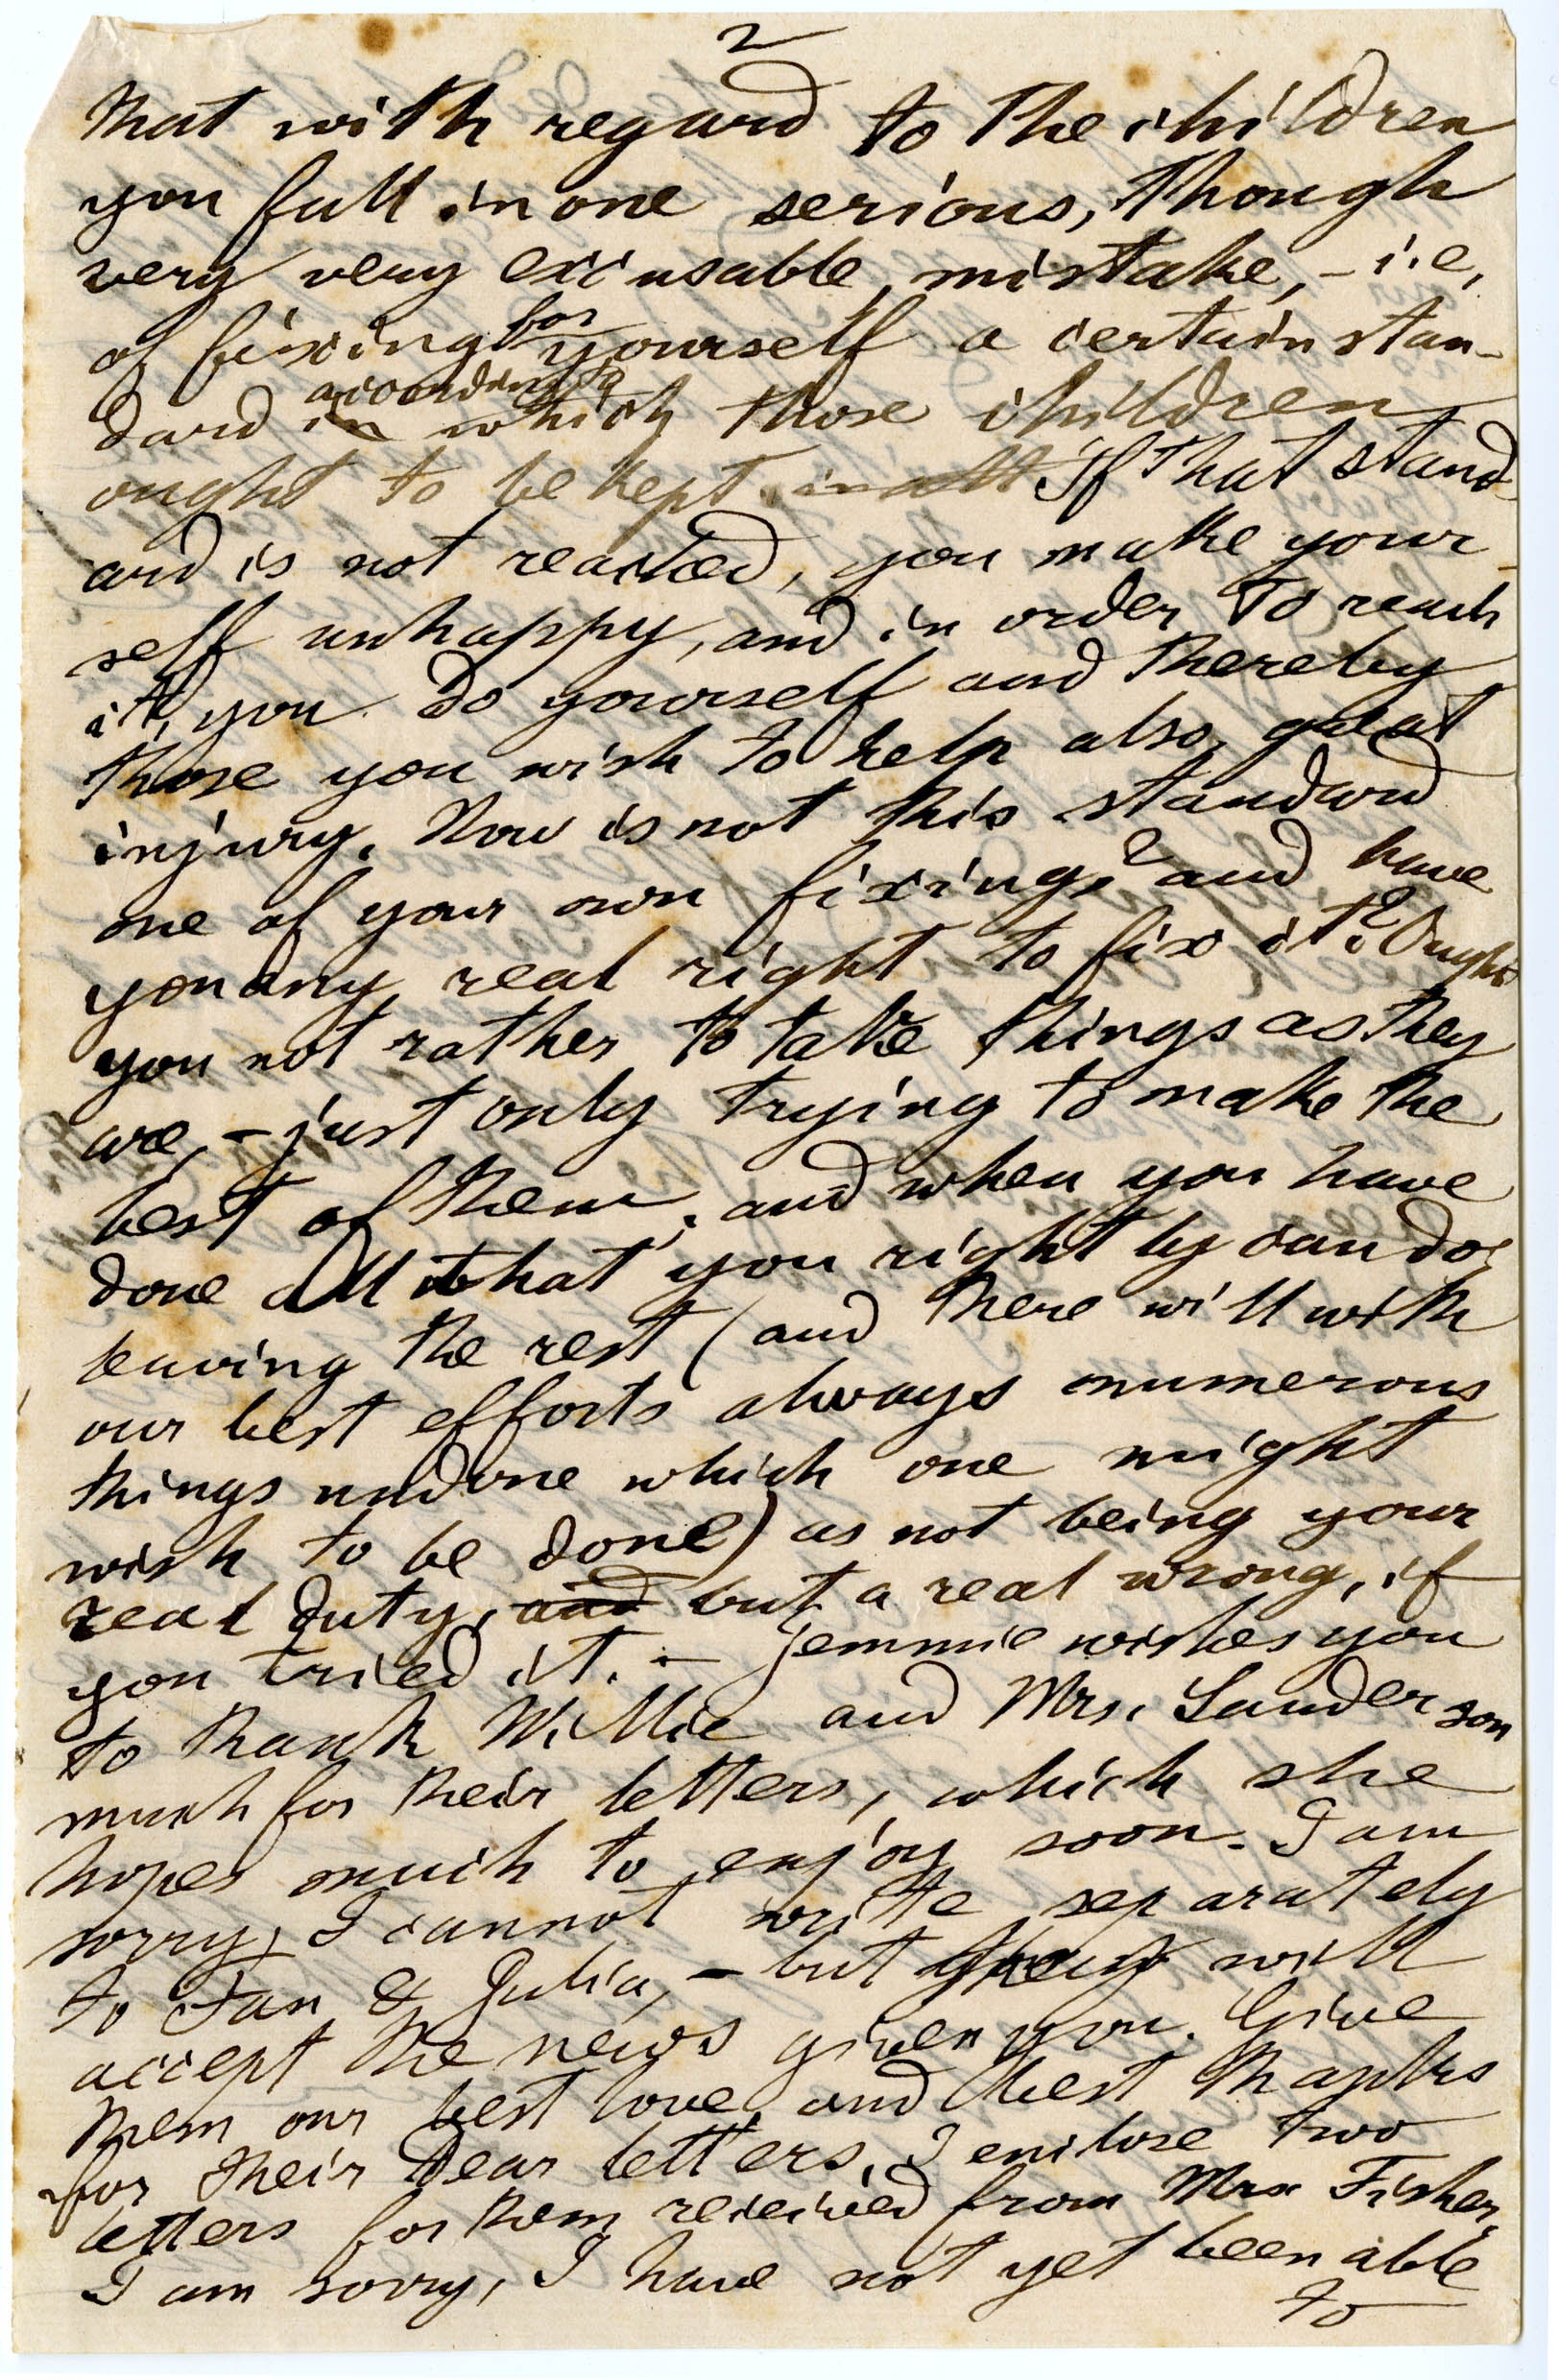 2
that with regard to the children
you fall in one serious, though
very very excusable mistake, - i.e,
of fixing for yourself a certain stan-
dard in according to which those children
ought to be kept. If that stand-
ard is not reached, you make your-
self unhappy, and in order to reach
it, you do yourself and thereby
those you wish to help also, great
injury. Now is not this standard
one of your own fixing? and have
you any real right to fix it? Ought
you not rather to take things as they
are, - just only trying to make the
best of them, and when you have
done all that you rightly can do,
leaving the rest (and there will with
our best efforts always numerous
things undone which one might
wish to be done) as not being your
real duty, and but a real wrong, if
you tried it. - Jemmie wishes you
to thank Willie and Mrs. Sanderson
much for their letters, which she
hopes much to enjoy soon. I am
sorry, I cannot write separately
to Jan & Julia, - but they will
accept the news given you. Give
them our best love and best thanks
for their dear letters. I enclose two
letters for them received from Mrs Fisher.
I am sorry, I have not yet been able
to